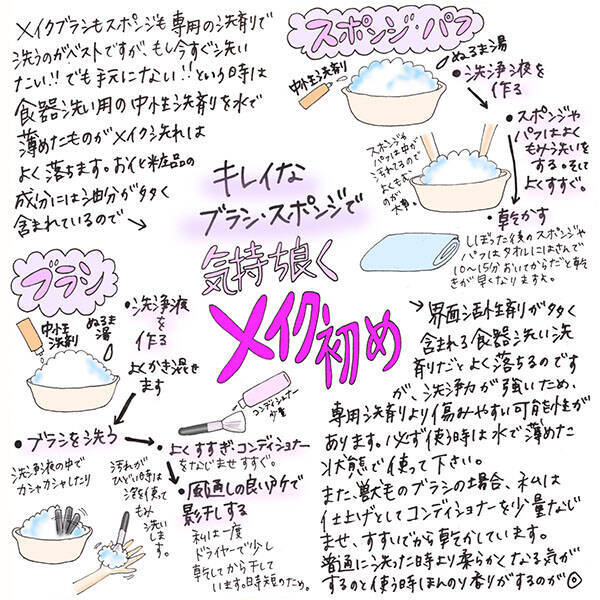 メイクブラシもスポンジも専用の洗剤で
洗うのがベストですが、もし今すぐ洗い
たい!!でも手元にない!!という時は
食器洗い用の中性洗剤を水で
薄めたものがメイク汚れは
よく落ちます。お化粧品の
成分には油分が多く
含まれているので
スポンジ・パフ
中性洗剤
ぬるま湯
・洗浄液を
作る
・スポンジや
パフはよく
もみ洗いを
する。そして
よくすすぐ。
スポンジや
パフは中が
汚れてるので
よくもむ
のが
大事。
・乾かす
しぼった後のスポンジや
パフはタオルにはさんで
10〜15分おいてからだと乾
きが早くなります。
キレイな
ブラシ・スポンジで
気持ち良く
メイク初め
ブラシ
中性
洗剤
ぬるま
湯
・洗浄液
を
作る
よくかき混ぜ
ます
・ブラシを洗う
洗浄液の中で
カシャカシャしたり
汚れが
ひどい時は
泡を使って
もみ
洗いし
ます。
コンディショナー
少量
・よくすすぎ・コンディショナー
をなじませすすぐ。
・風通しの良い日かげで
影干しする
私は一度
ドライヤーで少し
乾してから干して
います。時短のため。
界面活性剤が多く
含まれる食器洗い洗
剤だとよく落ちるのです
が、洗浄力が強いため、
専用洗剤より傷みやすい可能性が
あります。必ず使う時は水で薄めた
状態で使って下さい。
また、獣毛のブラシの場合、私は
仕上げとしてコンディショナーを少量なじ
ませ、すすいでから乾かしています。
普通に洗った時より柔らかくなる気が
するのと使う時ほんのり香りがするのが◎